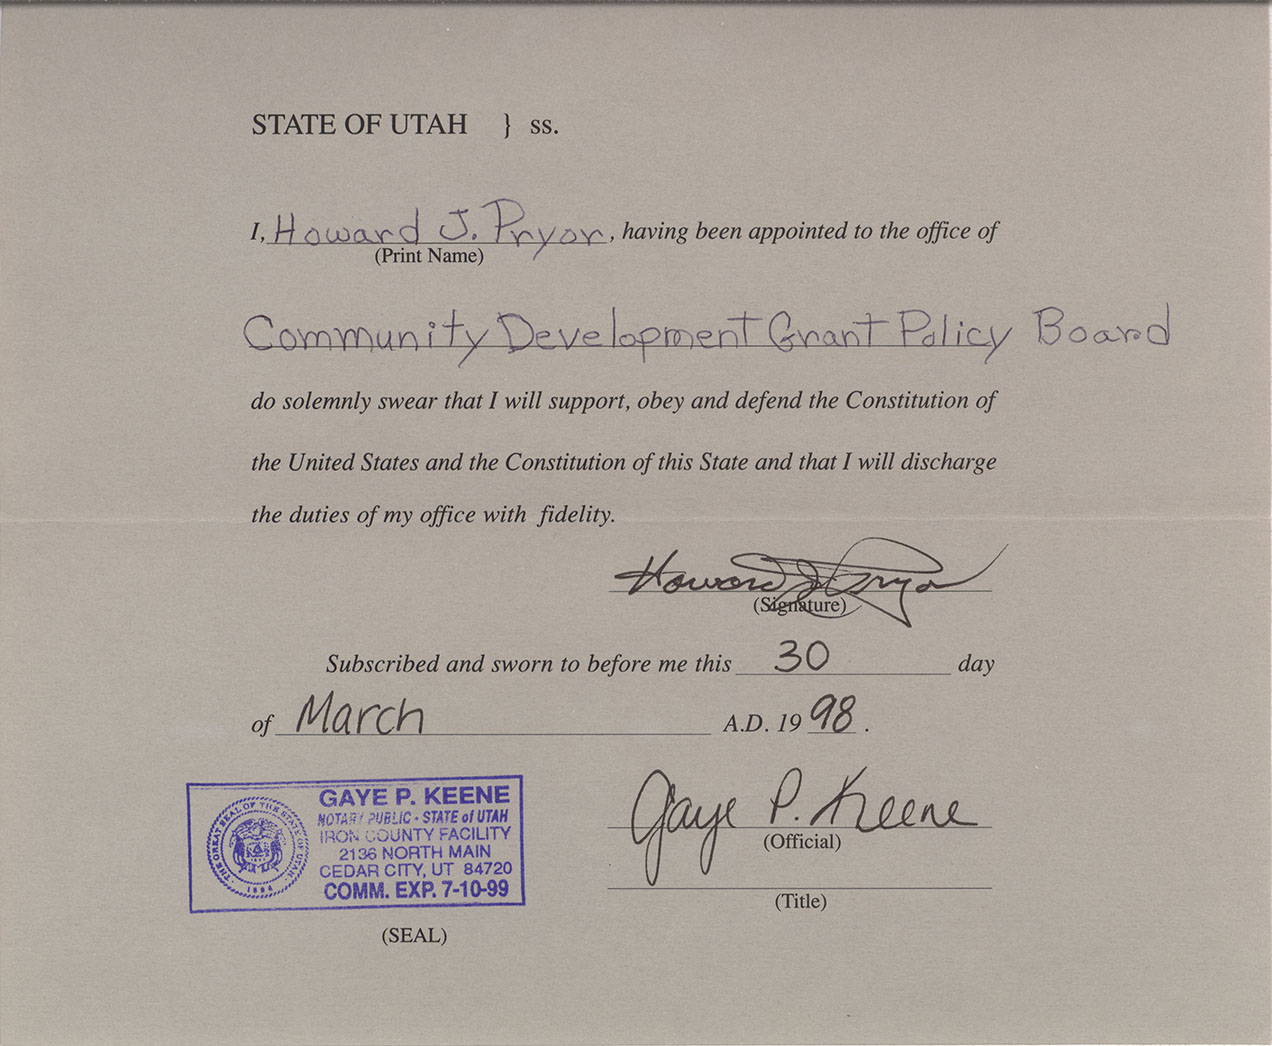 STATE OF UTAH } ss.
I, Howard J. Pryor, having been appointed to the office of
(Print Name)
Community Development Grant Policy Board
do solemnly swear that I will support, obey and defend the Constitution of
the United States and the Constitution of this State and that I will discharge
the duties of my office with fidelity.
Howard J Pryor
(Signature)
Subscribed and sworn to before me this 30 day
of March A.D. 19 98.
GAYE P. KEENE
NOTARY PUBLIC - STATE of UTAH
IRON COUNTY FACILITY
2136 NORTH MAIN
CEDAR CITY, UT 84720
COMM. EXP. 7-10-99
THE GREAT SEAL OF THE STATE OF UTAH
1896
(SEAL)
Gaye P. Keene
(Official)
(Title)